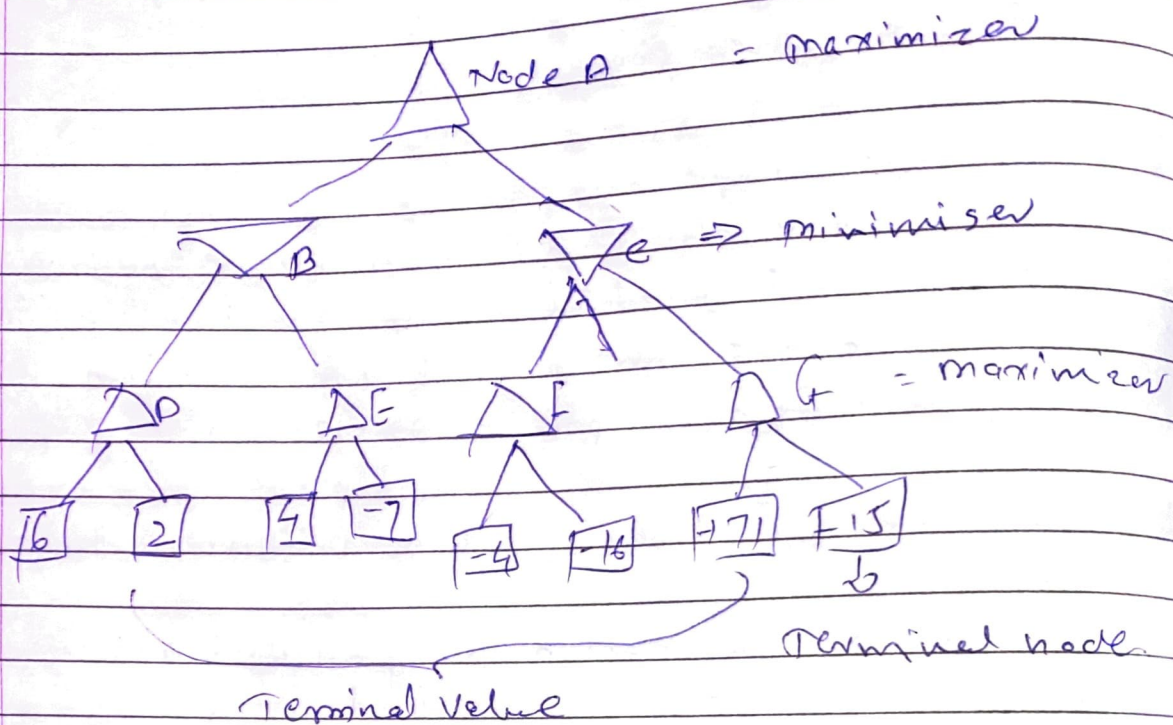 Node A = maximizer
B
C => minimiser
D
E
F
G = maximizer
6 2 4 -7 -4 -16 -15
Terminal node
Terminal Value